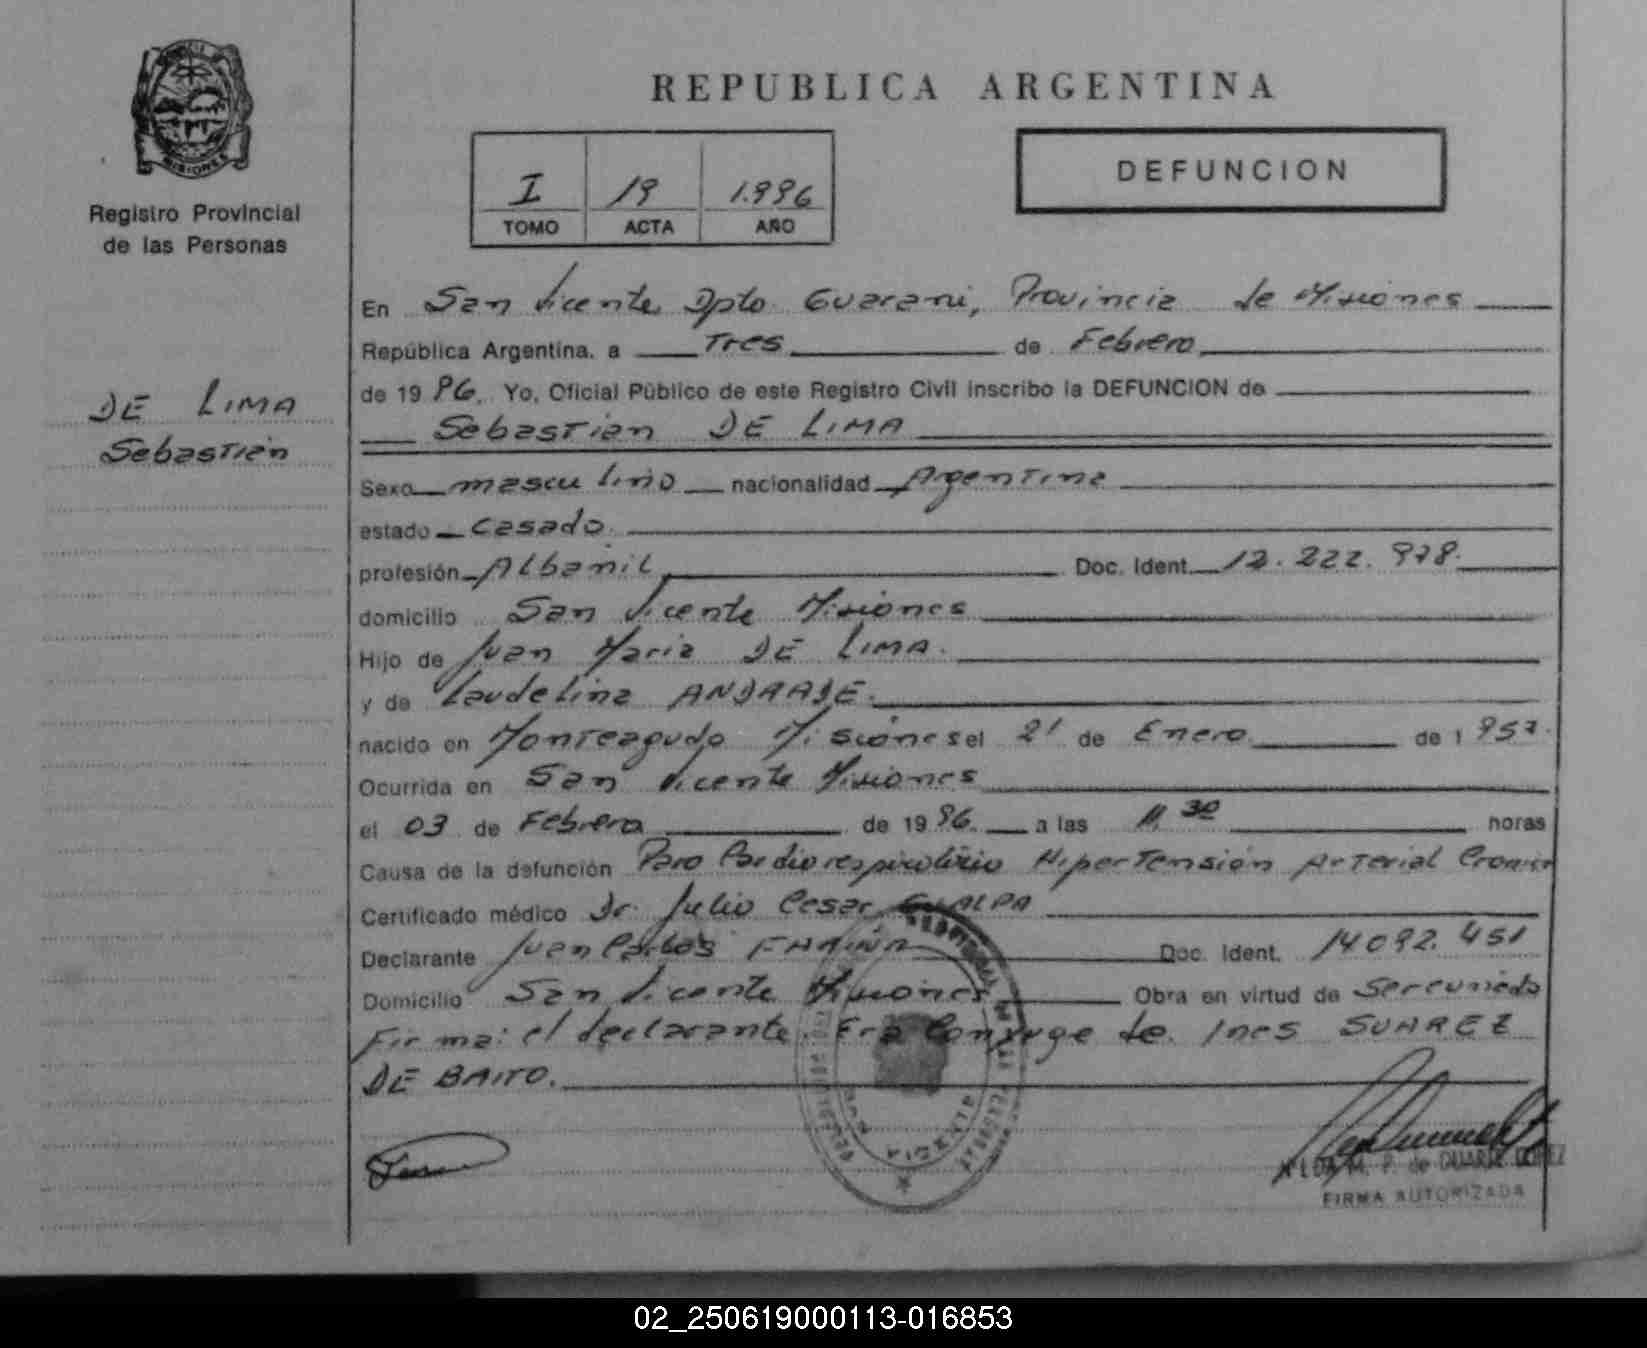 REPUBLICA ARGENTINA
MISIONES
Registro Provincial
de las Personas
I 19 1.996
TOMO ACTA AÑO
DEFUNCION
DE LIMA
Sebastián
En San Vicente Dpto. Guarani, Provincia de Misiones
República Argentina, a Tres de Febrero
de 1996. Yo, Oficial Público de este Registro Civil inscribo la DEFUNCION de
Sebastián DE LIMA
Sexo masculino nacionalidad Argentina
estado Casado.
profesión Albanil Doc. Ident. 12.222.978.
domicilio San Vicente Misiones
Hijo de Juan Maria DE LIMA.
y de Laudelina ANDRADE.
nacido en Monteagudo Misiones el 21 de Enero de 1957.
Ocurrida en San Vicente Misiones
el 03 de Febrero de 1996. a las 11,30 horas
Causa de la defunción Paro Cardiorespiratorio Hipertensión Arterial Cronica
Certificado médico Dr. Julio Cesar GUALPA
Declarante Juan Carlos FARIÑA Doc. Ident. 14092.451
Domicilio San Vicente Misiones Obra en virtud de Ser cuñado
Firma: el declarante. Era Conyuge de Ines SUAREZ
DE BAITO.
M. P. de DUARTE LOPEZ
FIRMA AUTORIZADA
02_250619000113-016853